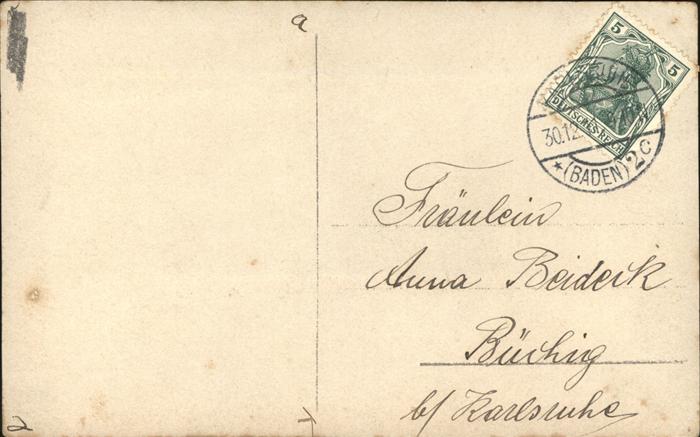 a
5 5
DEUTSCHES REICH
30.12.
★(BADEN) 2c
Fräulein
Anna Beiderk
Büchig
b/ Karlsruhe